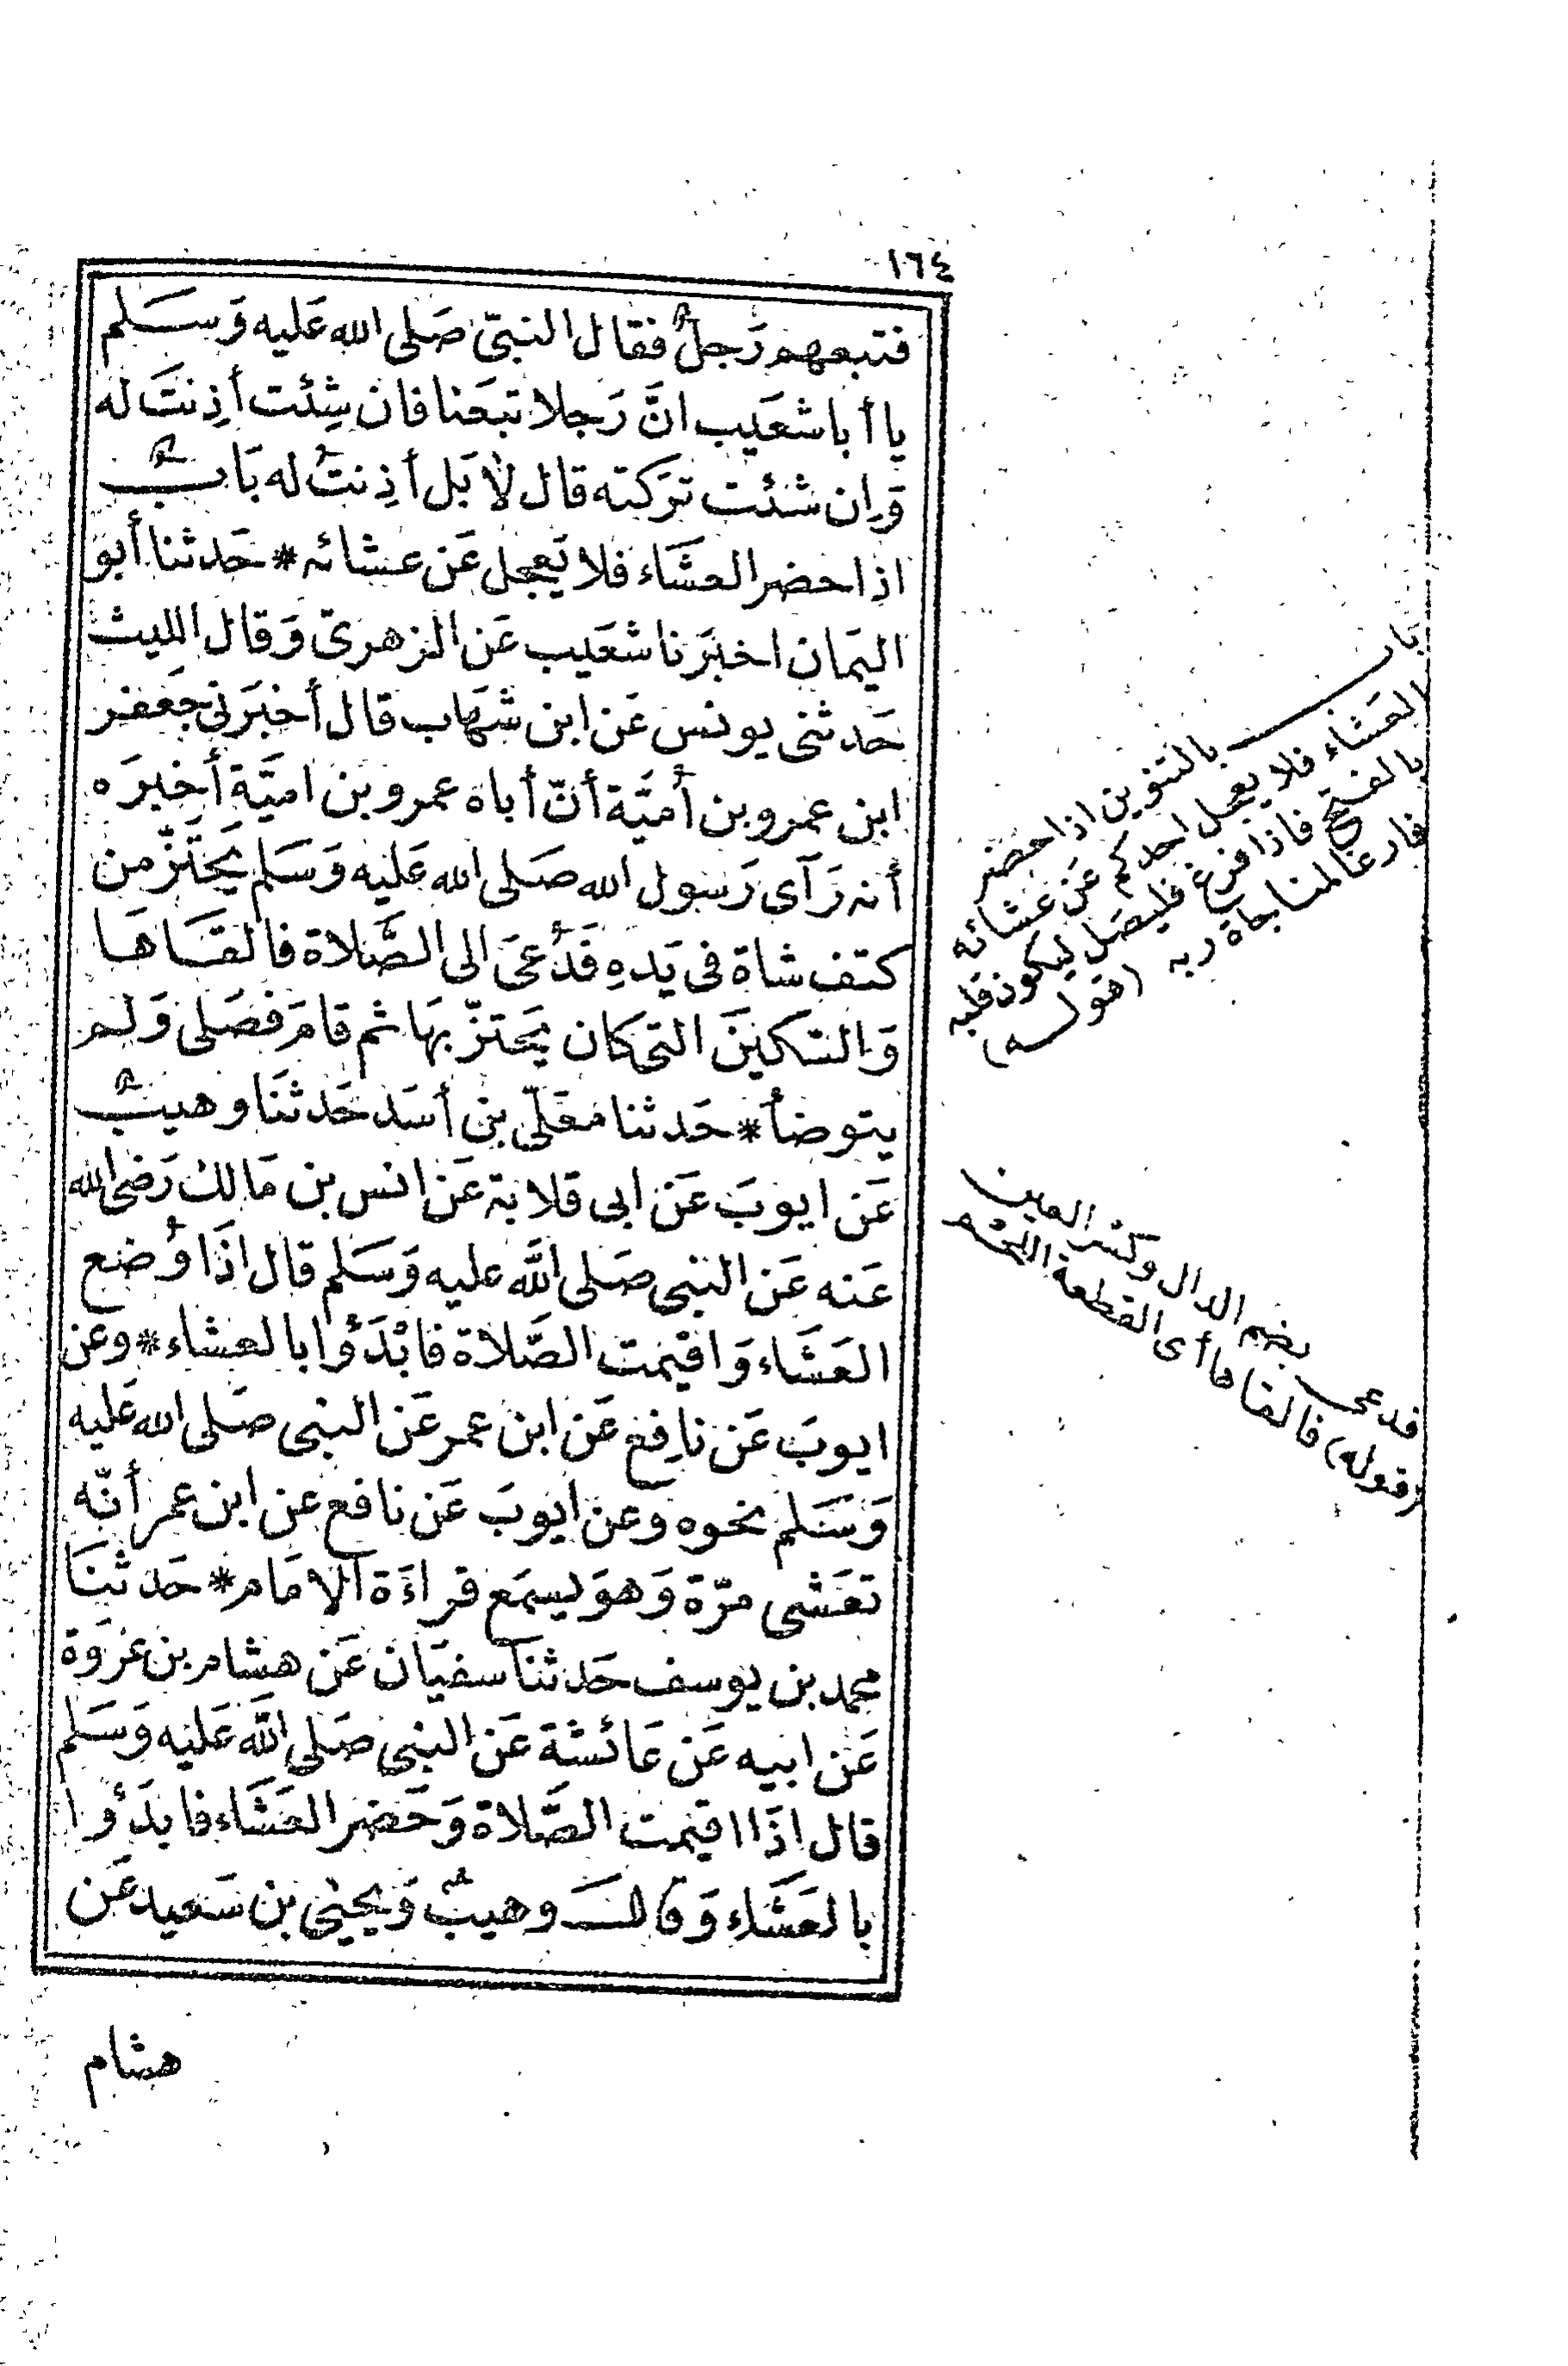 ١٦٤
فتبعهم رَجلٌ فقال النبيّ صَلى الله عَليه وَسَلم
يا أبا شعَيب انَّ رَجلا تبعَنا فان شِئت أذِنتَ له
وَإن شئت ترَكته قال لاٰ بَل أذِنتُ له بَابٌ
اذا حضر العشَاء فلا يَعجل عَن عشائه * حَدثنا أبو
اليَمان اخبَرَنا شعَيب عَن الزهرىّ وَقال الليث
حَدثنى يونس عَن ابن شهَاب قال أخبَرَنى جَعفر
ابن عمرو بن أُميَّة أنّ أباه عمرو بن اميَّة أخبرَه
أنه رَآى رَسول الله صَلى الله عَليه وَسَلم يَحتَزّ من
كتف شاة فى يَدهِ فَدُعىَ الى الصَّلاة فالقَاهَا
وَالسّكينَ التى كان يَحتزّ بهَا ثم قامَ فصَلى وَلم
يتوضأ * حَدثنا معَلّى بن أسَد حَدثنَا وهيبٌ
عَن ايوبَ عَن ابى قلابة عَن انس بن مَالك رَضى الله
عَنه عَن النبى صَلى اللَّه عليه وَسَلم قال اذَا وُضع
العَشَاء وَاقيمت الصَّلاة فابْدَؤا بالعشاء * وعن
ايوبَ عَن نافِع عَن ابن عمر عَن النبى صَلى الله عَليه
وَسَلم نحوه وَعن ايوبَ عَن نافع عن ابن عمر أنّه
تعَشى مرّة وَهوَ يسمَع قراءَة الامَام * حَدثنَا
محمد بن يوسف حَدثنَا سفيَان عَن هشام بن عُروَة
عَن ابيه عَن عَائشة عَن النبى صَلى اللَّه عَليه وَسَلم
قال اذَا اقيمت الصَّلاة وَحَضر العَشَاء فابدَؤا
بالعَشَاءِ وَقالَ وهيبٌ وَيحيٰى بن سَعيد عَن
هشام
باب بالتنوين اذا حضر
العَشاء فلا يعجل احدكم عَن عشائه
بالفتح فاذا فرغ فليصَل ليكون قلبه
فارغا لمناجاة ربه (قوله)
فدعى بضم الدال وكسر العين
(قوله) فالقاها أى القطعة اللحم